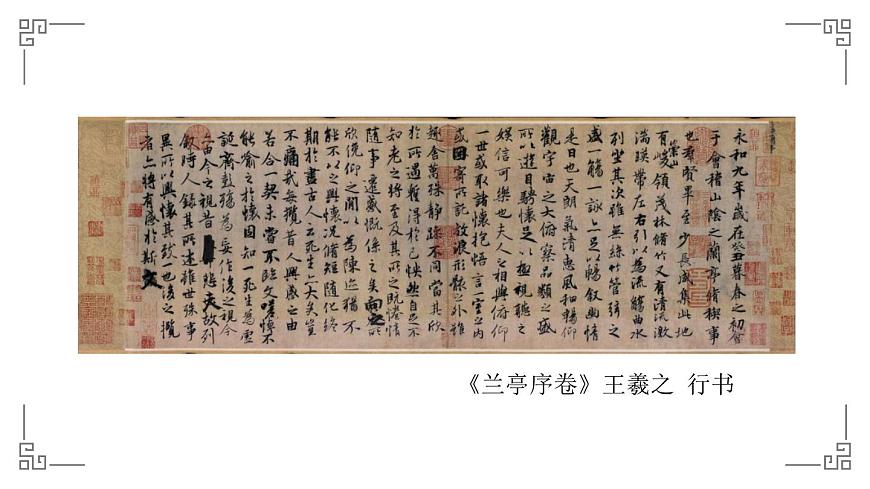 永和九年歲在癸丑暮春之初會
于會稽山陰之蘭亭脩禊事
也羣賢畢至少長咸集此地
有崇山峻領茂林脩竹又有清流激
湍暎帶左右引以為流觴曲水
列坐其次雖無絲竹管弦之
盛一觴一詠亦足以暢敘幽情
是日也天朗氣清惠風和暢仰
觀宇宙之大俯察品類之盛
所以遊目騁懷足以極視聽之
娛信可樂也夫人之相與俯仰
一世或取諸懷抱悟言一室之內
或因寄所託放浪形骸之外雖
趣舍萬殊靜躁不同當其欣
於所遇蹔得於己怏然自足不
知老之將至及其所之既惓情
隨事遷感慨係之矣向之所
欣俛仰之閒以為陳迹猶不
能不以之興懷況脩短隨化終
期於盡古人云死生亦大矣豈
不痛哉每攬昔人興感之由
若合一契未嘗不臨文嗟悼不
能喻之於懷固知一死生為虛
誕齊彭殤為妄作後之視今
亦由今之視昔悲夫故列
敘時人錄其所述雖世殊事
異所以興懷其致一也後之攬
者亦將有感於斯文
《兰亭序卷》王羲之 行书